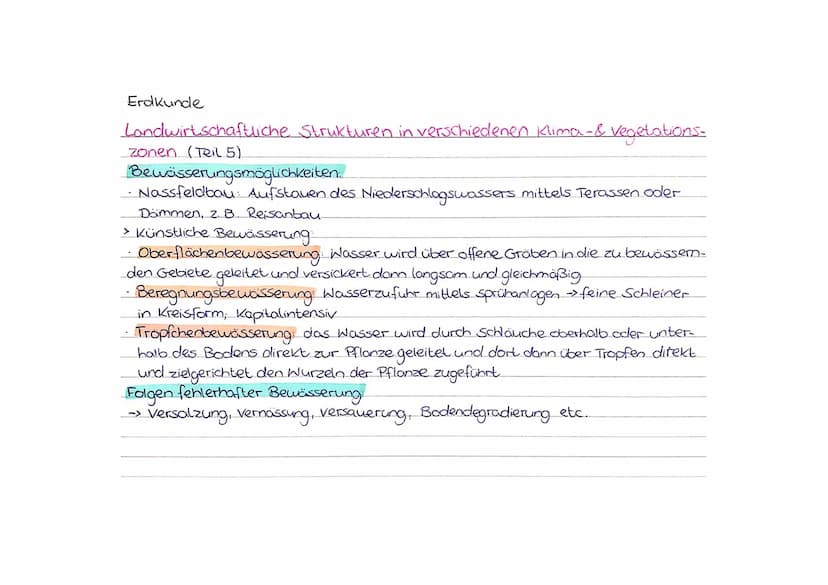 Erdkunde
Landwirtschaftliche Strukturen in verschiedenen Klima-& Vegetations-
zonen (Teil 5)
Bewässerungsmöglichkeiten:
· Nassfeldbau: Aufstauen des Niederschlagswassers mittels Terassen oder
Dämmen, z.B. Reisanbau
> Künstliche Bewässerung:
· Oberflächenbewässerung: Wasser wird über offene Gräben in die zu bewässern-
den Gebiete geleitet und versickert dann langsam und gleichmäßig
· Beregnungsbewässerung: Wasserzufuhr mittels Sprühanlagen → feine Schleiner
in Kreisform, Kapitalintensiv
· Tröpfchenbewässerung: das Wasser wird durch Schläuche oberhalb oder unter-
halb des Bodens direkt zur Pflanze geleitet und dort dann über Tropfen direkt
und zielgerichtet den Wurzeln der Pflanze zugeführt
Folgen fehlerhafter Bewässerung:
→ Versalzung, Vernässung, Versauerung, Bodendegradierung etc.